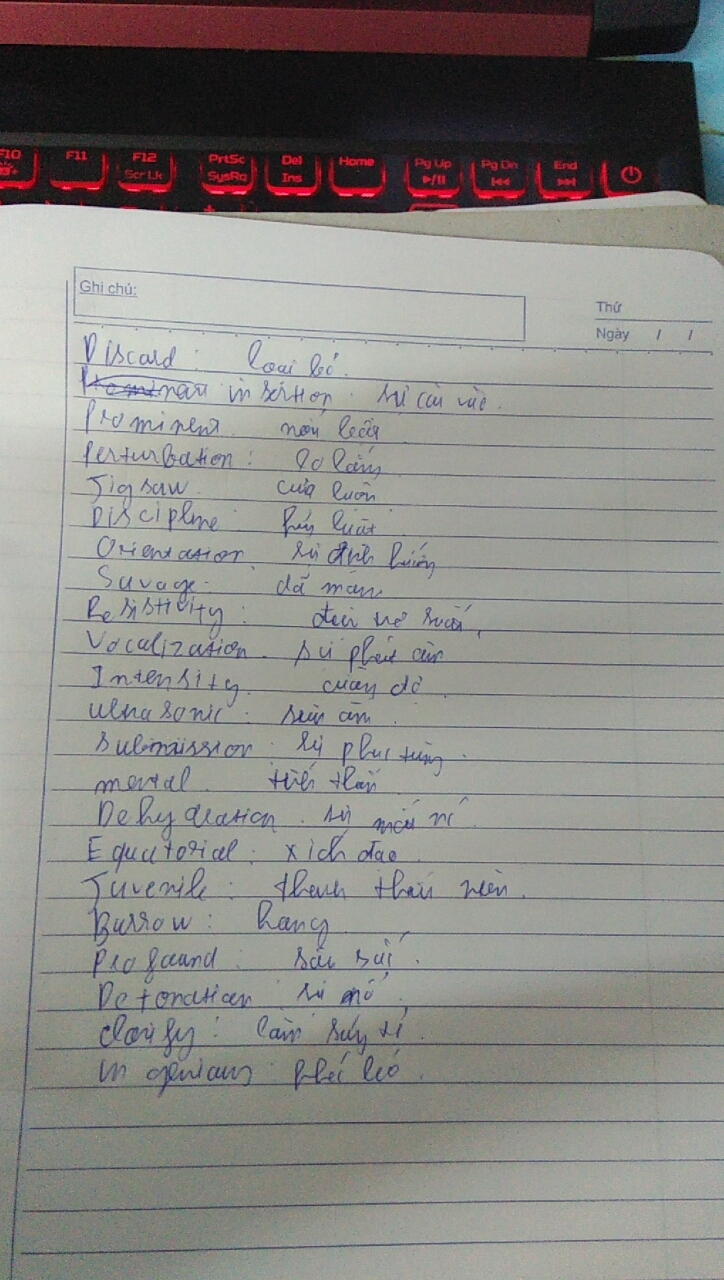 F10 F11 F12 PrtSc Del Home Pg Up Pg Dn End
Scr Lk SysRq Ins
Ghi chú:
Thứ
Ngày / /
Discard : loại bỏ.
insertion. sự cài vào.
Prominent nổi bật
Perturbation: lo lắng
Jigsaw. cưa lượn
Discipline: kỷ luật
Orientation sự định hướng
Savage. dã man
Resistivity: điện trở suất.
Vocalization. sự phát âm
Intensity. cường độ
ultrasonic: siêu âm.
Submission: sự phục tùng.
mental tinh thần
Dehydration. sự mất nước
Equatorial: xích đạo.
Juvenile: thanh thiếu niên.
Burrow: hang
Profound: sâu sắc.
Detonation sự nổ.
clarify: làm sáng tỏ.
khéo léo.